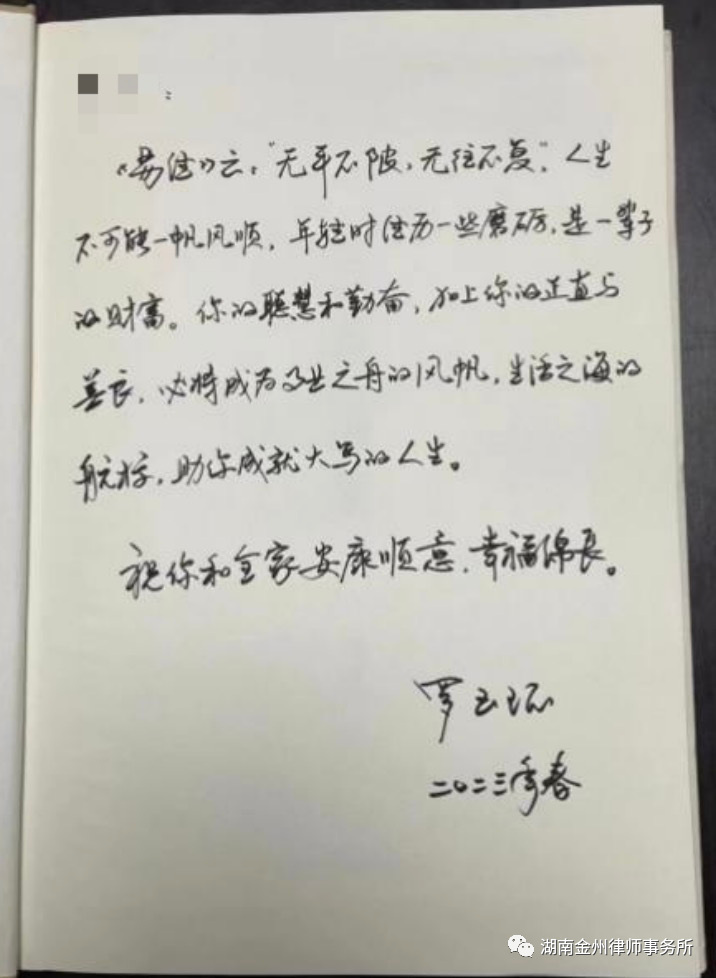 :
《易经》云，"无平不陂，无往不复"，人生
不可能一帆风顺，年轻时经历一些磨砺，是一辈子
的财富。你的聪慧和勤奋，加上你的正直与
善良，必将成为事业之舟的风帆，生活之海的
航标，助你成就大写的人生。
祝你和全家安康顺意，幸福绵长。
罗玉环
二〇二三年春
湖南金州律师事务所